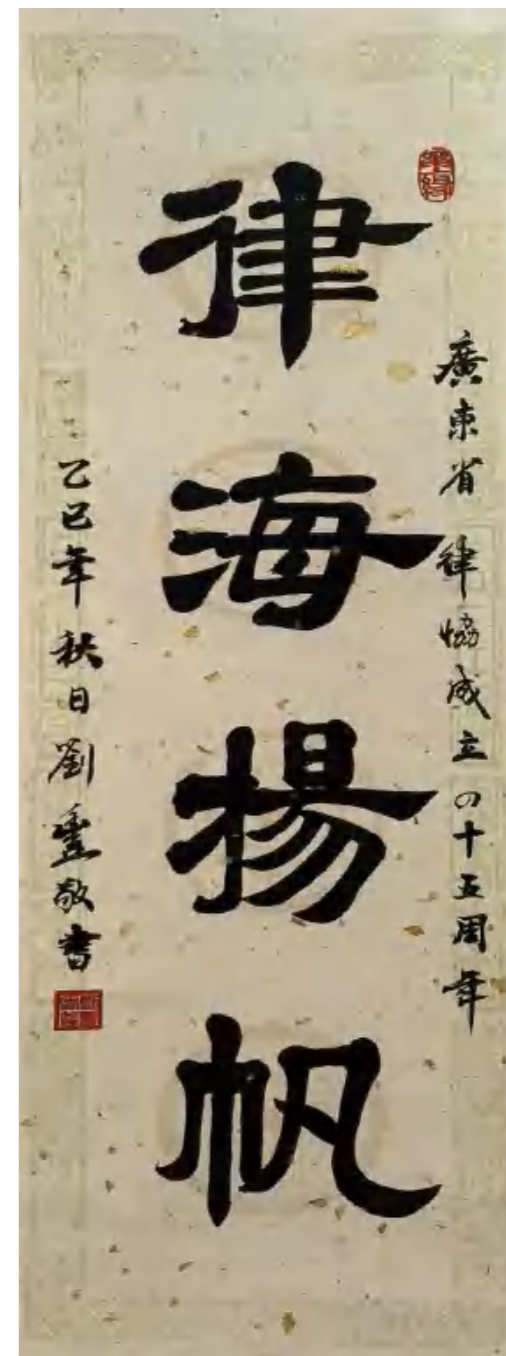 廣東省律協成立四十五周年
律海揚帆
乙巳年秋日劉豊敬書